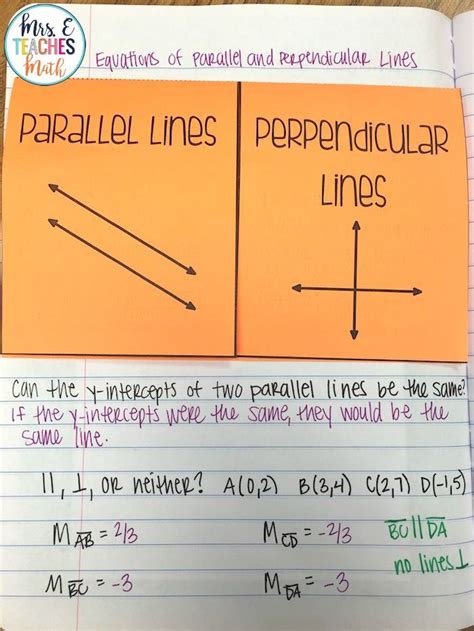 Mrs. E
TEACHES
Math
Equations of Parallel and Perpendicular Lines
Parallel Lines
Perpendicular
Lines
Can the y-intercepts of two parallel lines be the same?
If the y-intercepts were the same, they would be the
same line.
||, ⊥, or neither? A(0,2) B(3,4) C(2,7) D(-1,5)
M_AB = 2/3 M_CD = -2/3 BC || DA
no lines ⊥
M_BC = -3 M_DA = -3